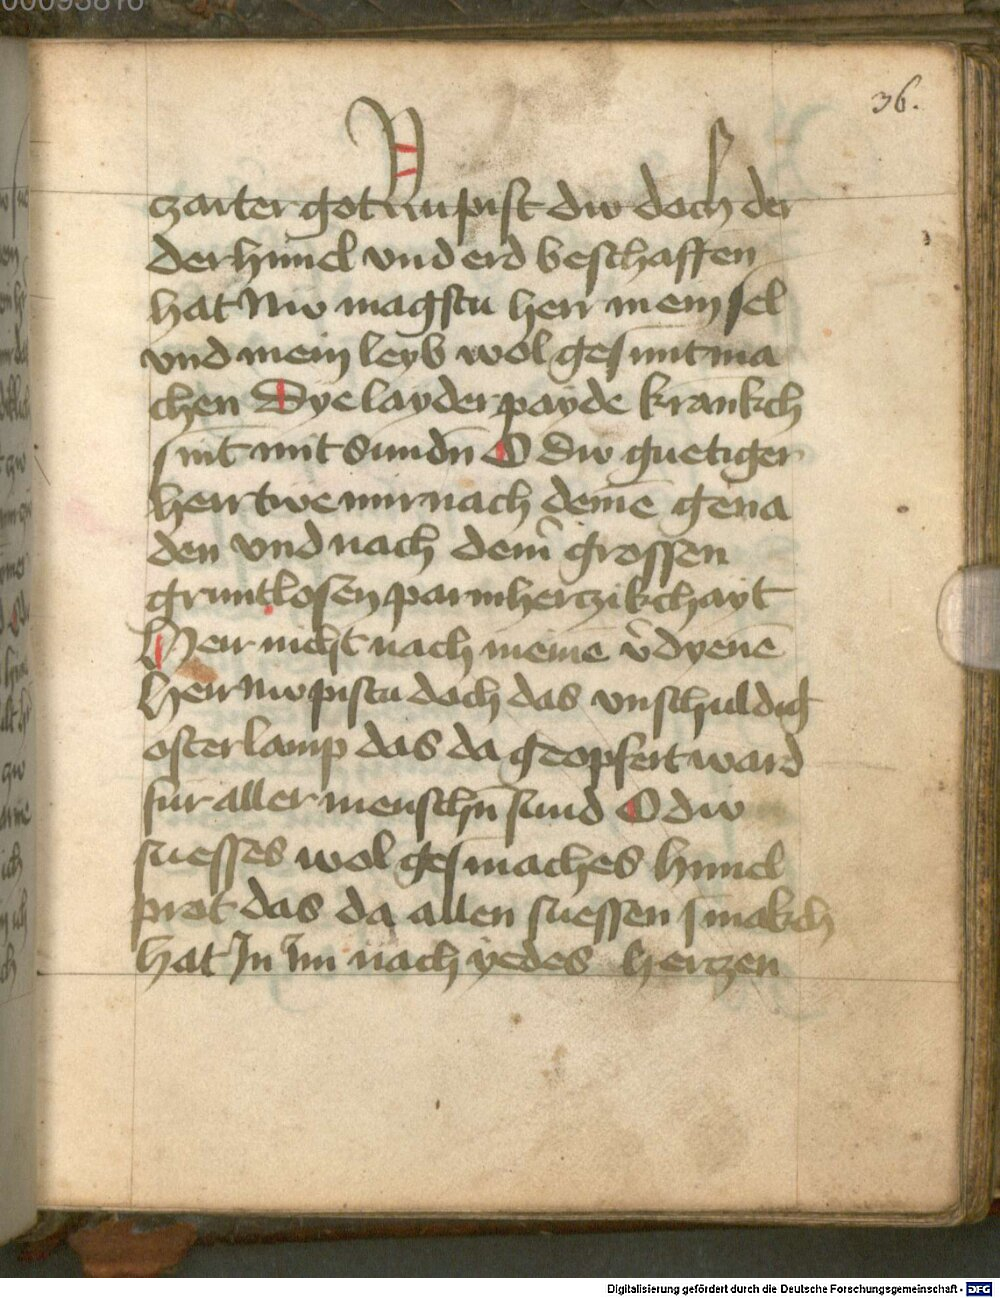 00095816
36.
zarter got Nu pist dw doch der
der himel vnd erd beschaffen
hat Nw magstu herr mein sel
vnd mein leyb wol gesunt ma
chen Dye layder payde krankch
sint mit sundn̄ O dw guetiger
herr twe mir nach deinē gena
den vnd nach dein̄ grossen
gruntlosen parmherczikchayt
Herr nicht nach meinē v̄dyenē
Herr Nw pistu doch das vnschuldig
osterlamp das da geopfert ward
fur aller menschn̄ sund O dw
suesses wol gesmaches himel
prot das da allen suessen smakch
hat Jn im nach yedes herczen
Digitalisierung gefördert durch die Deutsche Forschungsgemeinschaft - DFG